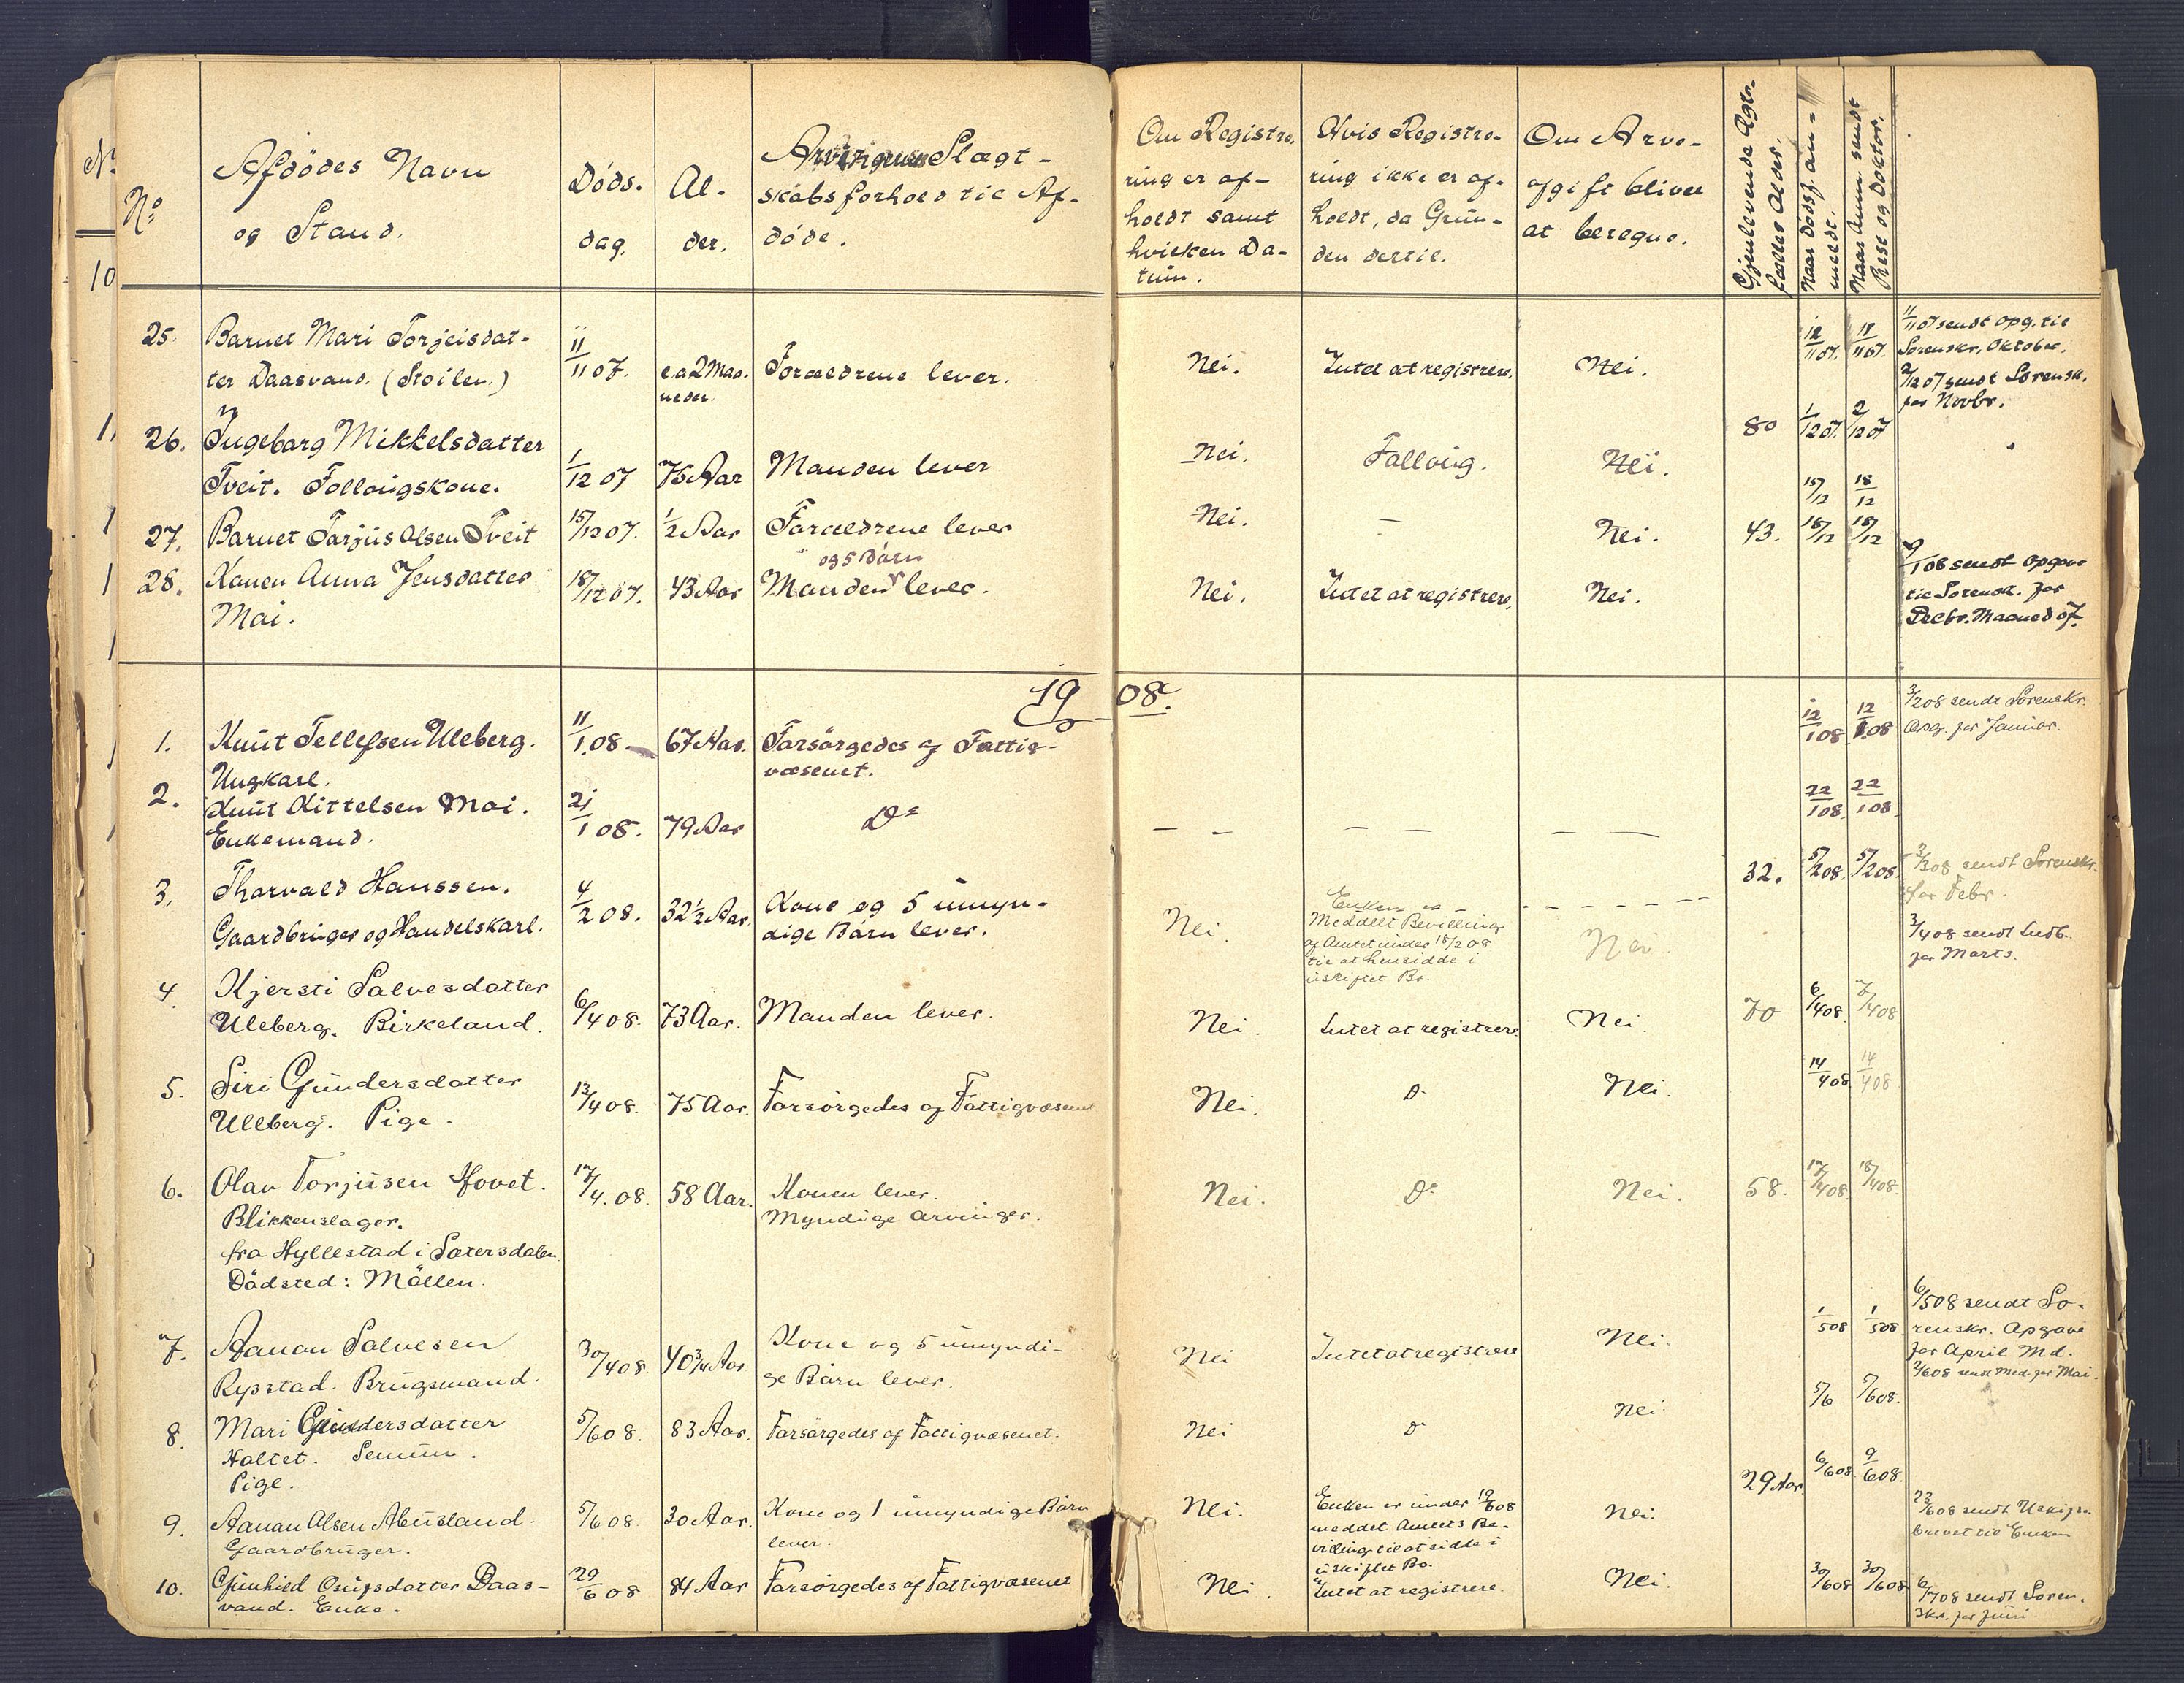 N.
10
1,
1
1
1
No
Afdödes Navn
og Stand.
Döds-
dag.
Al-
der.
Slægt-
skabsforhold til Af-
döde.
Om Registre-
ring er af-
holdt samt
hvilken Da-
tum.
Hvis Registre-
ring ikke er af-
holdt, da Grun-
den dertil.
Om Arve-
afgift bliver
at beregne.
Gjenlevende Ægte-
fælles Alder.
Naar Dödsf. an-
meldt.
Naar Anm. sendt
og Doktor.
25. Barnet Mari Torjeisdat-
ter Daasvand. (Stoilen.)
11/11 07.
ca 2 Maa-
neder.
Forældrene lever.
Nei.
Intet at registrere.
Nei.
12/11 07.
11/11 07 sendt Opg. til
Sorenskr. Oktober.
2/12 07 sendt Sorensk.
for Novbr.
26. Ingeborg Mikkelsdatter
Tveit. Follaugskone.
1/12 07
75 Aar
Manden lever
Nei.
Follaug.
Nei.
80
1/12 07.
2/12 07
27. Barnet Tarjus Olsen Tveit
15/12 07.
1/2 Aar
Forældrene lever
Nei.
—
Nei.
15/12
18/12
28. Konen Anna Jensdatter
Moi.
18/12 07.
43 Aar
og 5 Börn
Manden lever.
Nei.
Intet at registrere.
Nei.
43.
18/12
18/12
9/1 08 sendt Opgave
til Sorensk. for
Decbr. Maaned 07.
1908.
1. Knut Tellefsen Uleberg.
Ungkarl.
11/1 08
67 Aar.
Forsörgedes af Fattig-
væsenet.
12/1 08
12/1 08
3/2 08 sendt Sorenskr.
Opg. for Januar.
2. Knut Kittelsen Moi.
Enkemand.
21/1 08.
79 Aar
Do
— —
— —
— —
22/1 08.
22/1 08.
3. Tharvald Hanssen.
Gaardbruger og Handelskarl.
4/2 08.
32 1/2 Aar.
Kone og 5 umyn-
dige Börn lever.
Nei.
Enken er
Meddelt Bevilling
af Amtet under 18/2 08
til at hensidde i
uskiftet Bo.
Nei.
32.
5/2 08.
5/2 08.
3/3 08 sendt Sorenskr.
for Febr.
3/4 08 sendt Indb.
for Marts.
4. Kjersti Salvesdatter
Uleberg. Birkeland.
6/4 08.
73 Aar.
Manden lever.
Nei.
Intet at registrere
Nei.
70
6/4 08.
7/4 08
5. Siri Gundersdatter
Uleberg. Pige.
13/4 08.
75 Aar.
Forsörgedes af Fattigvæsenet
Nei.
Do
Nei.
14/4 08
14/4 08
6. Olav Torjusen Hovet.
Blikkenslager.
fra Hyllestad i Sætersdalen.
Dödsted: Möllen.
17/4. 08.
58 Aar.
Konen lever.
Myndige Arvinger.
Nei.
Do
Nei.
58.
17/4 08.
18/4 08.
7. Aanon Salvesen
Rysstad. Brugsmand.
30/4 08.
40 3/4 Aar
Kone og 5 umyndi-
ge Börn lever.
Nei
Intet at registrere
Nei.
1/5 08
1/5 08.
6/5 08 sendt So-
renskr. Opgave
for April Md.
2/6 08 sendt Med. for Mai.
8. Mari Gundersdatter
Holtet. Senum.
Pige.
5/6 08.
83 Aar.
Forsörgedes af Fattigvæsenet.
Nei
Do
Nei.
5/6
7/6 08.
9. Aanon Olsen Abusland.
Gaardbruger.
5/6 08.
30 Aar.
Kone og 1 umyndige Börn
lever.
Nei.
Enken er under 19/6 08
meddelt Amtets Be-
villing til at sidde i
uskiftet Bo.
Nei.
29 Aar
6/6 08
9/6 08.
23/6 08 sendt
brevet til Enken
10. Gunhild Osufsdatter Daas-
vand. Enke.
29/6 08
84 Aar
Forsörgedes af Fattigvæsenet
Nei.
Intet at registrere.
Nei.
30/6 08
30/6 08
6/7 08 sendt Soren-
skr. for Juni